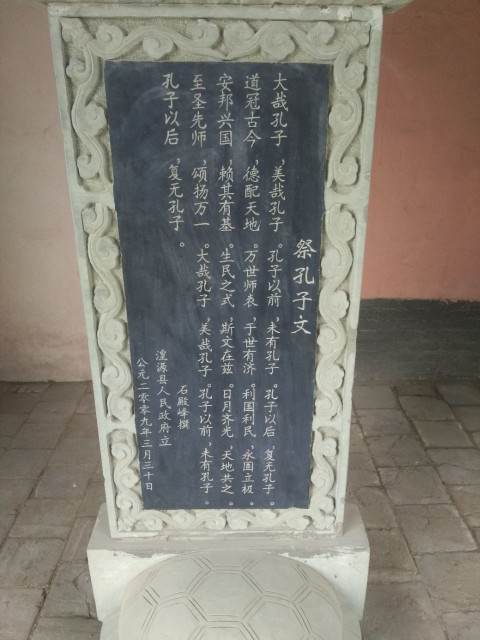 祭孔子文
大哉孔子，美哉孔子。孔子以前，未有孔子。孔子以后，复无孔子。
道冠古今，德配天地。万世师表，于世有济。利国利民，永固立极。
安邦兴国，赖其有基。生民之式，斯文在兹。日月齐光，天地共之。
至圣先师，颂扬万一。大哉孔子，美哉孔子。孔子以前，未有孔子。
孔子以后，复无孔子。
石殿峰撰
湟源县人民政府立
公元二零零九年三月三十日